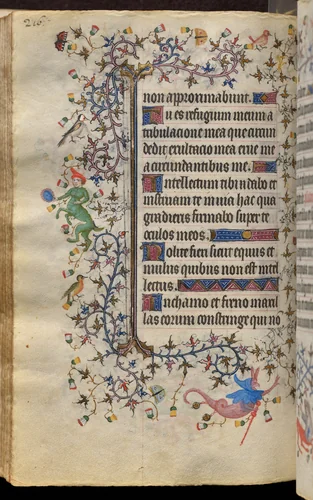 non approximabunt.
Tu es refugium meum a
tribulacione mea que circun
dedit exultacio mea erue me
a circundantibus me.
Intellectum tibi dabo et
instruam te in uia hac qua
gradieris firmabo super te
oculos meos.
Nolite fieri sicut equus et
mulus quibus non est intel
lectus.
In chamo et freno maxil
las eorum constringe qui no